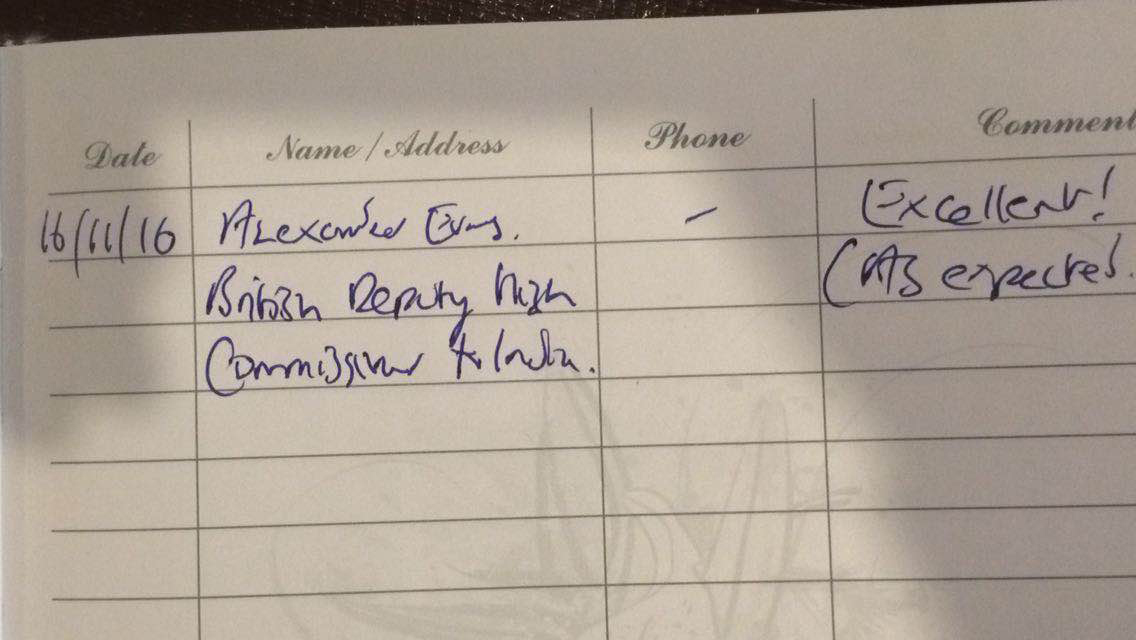 Date Name/Address Phone Comment
16/11/16 Alexander Evans. - Excellent!
British Deputy High (As expected.
Commissioner to India.